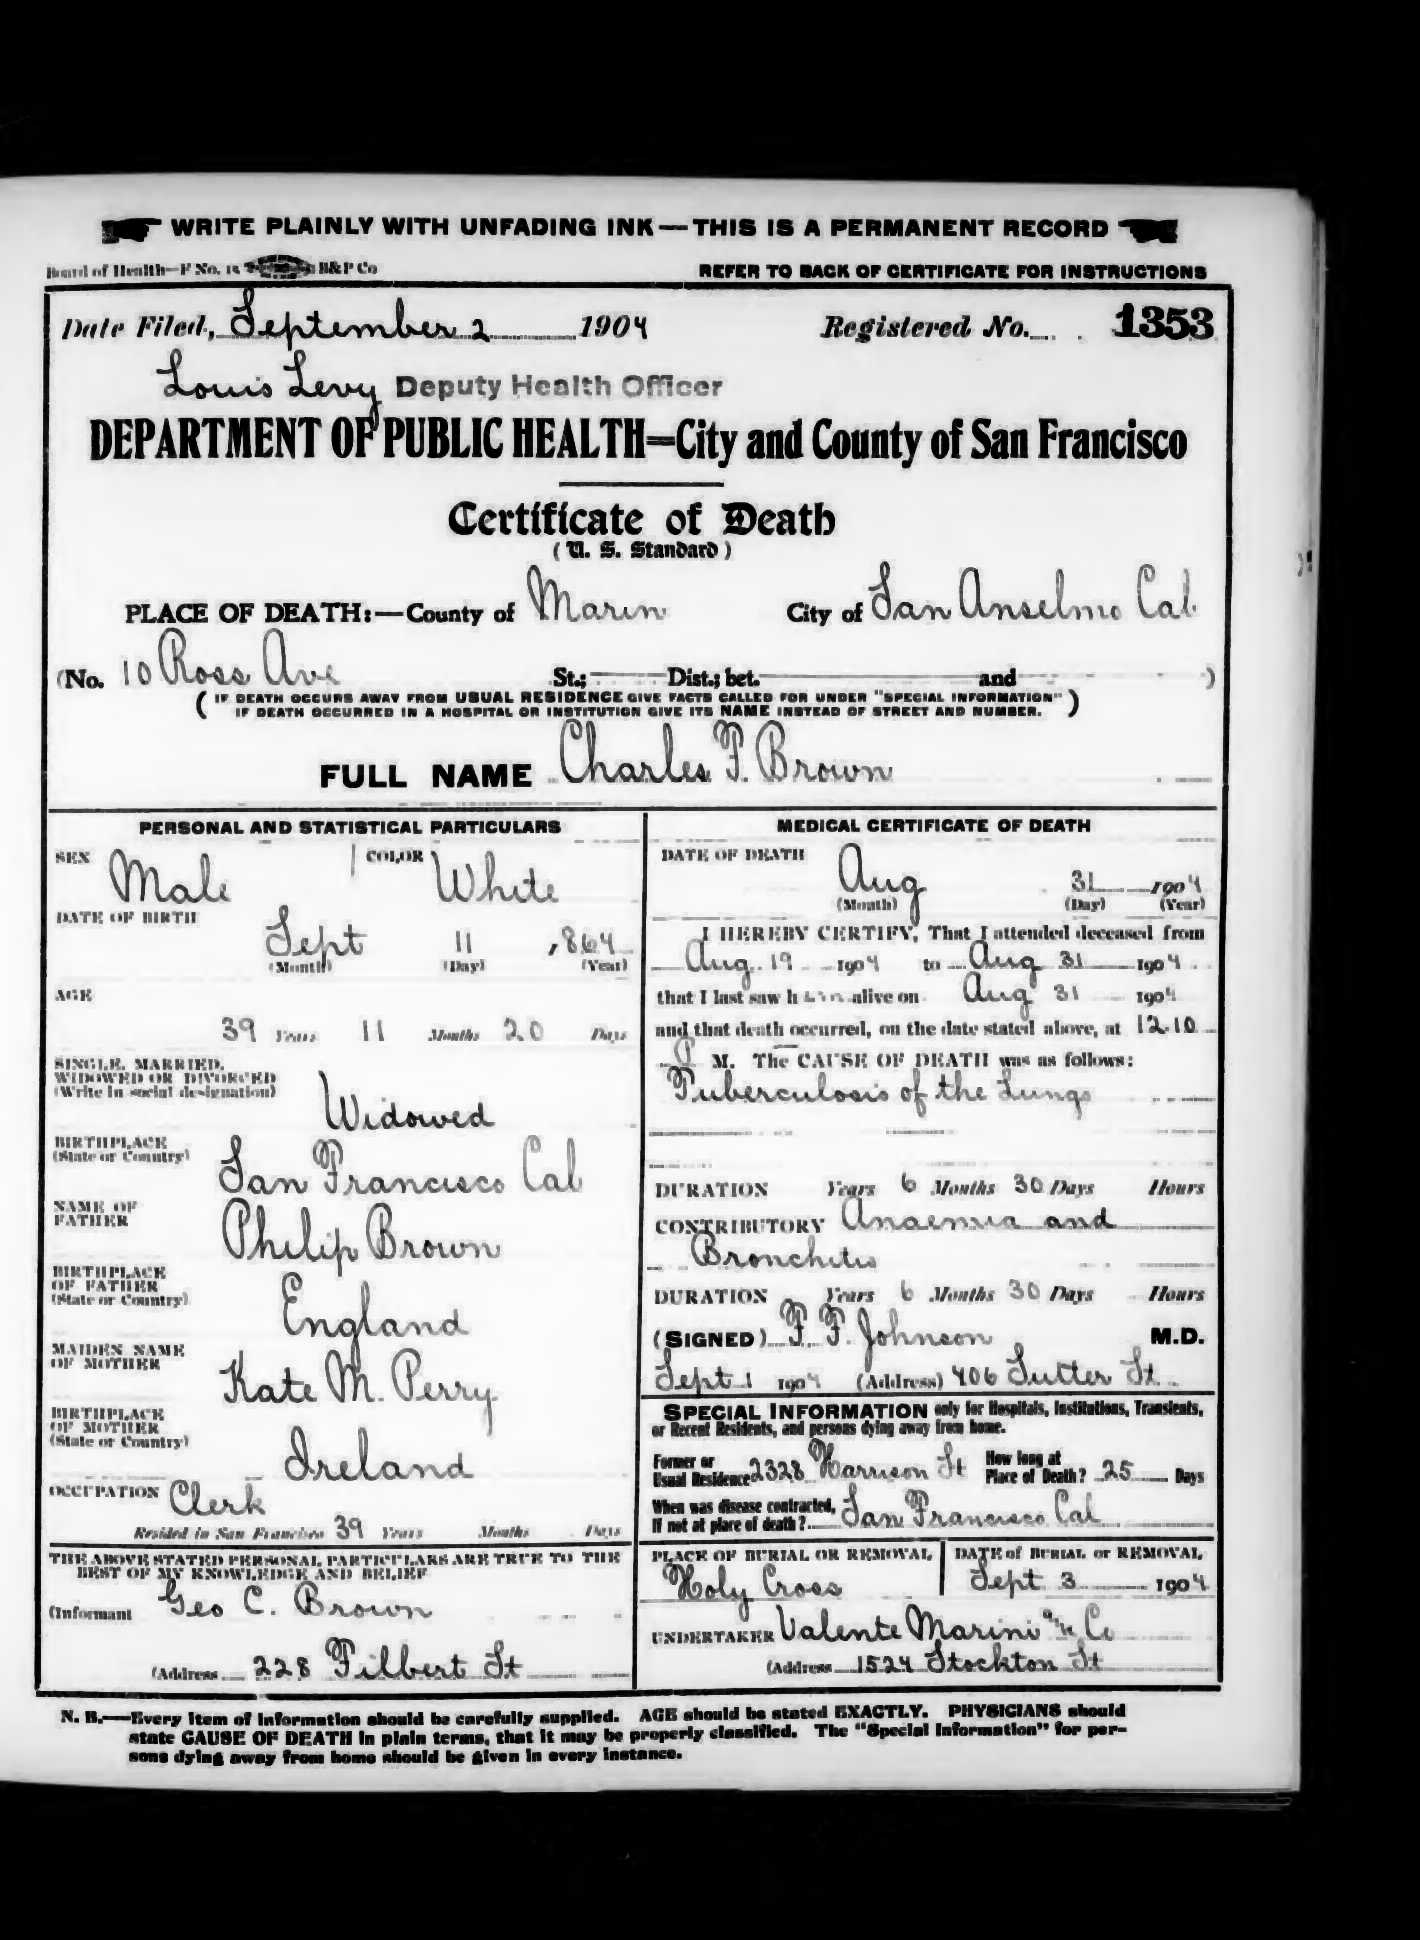 WRITE PLAINLY WITH UNFADING INK — THIS IS A PERMANENT RECORD
Board of Health—F No. 15 B&P Co REFER TO BACK OF CERTIFICATE FOR INSTRUCTIONS
Date Filed, September 2 1904 Registered No. 1353
Louis Levy Deputy Health Officer
DEPARTMENT OF PUBLIC HEALTH=City and County of San Francisco
Certificate of Death
(U. S. Standard)
PLACE OF DEATH:—County of Marin City of San Anselmo Cal
(No. 10 Ross Ave St.; Dist.; bet. and )
(IF DEATH OCCURS AWAY FROM USUAL RESIDENCE GIVE FACTS CALLED FOR UNDER "SPECIAL INFORMATION"
IF DEATH OCCURRED IN A HOSPITAL OR INSTITUTION GIVE ITS NAME INSTEAD OF STREET AND NUMBER.)
FULL NAME Charles F. Brown
PERSONAL AND STATISTICAL PARTICULARS
SEX Male COLOR White
DATE OF BIRTH
Sept 11 1864
(Month) (Day) (Year)
AGE
39 Years 11 Months 20 Days
SINGLE, MARRIED,
WIDOWED OR DIVORCED
(Write in social designation)
Widowed
BIRTHPLACE
(State or Country)
San Francisco Cal
NAME OF
FATHER
Philip Brown
BIRTHPLACE
OF FATHER
(State or Country)
England
MAIDEN NAME
OF MOTHER
Kate M. Perry
BIRTHPLACE
OF MOTHER
(State or Country)
Ireland
OCCUPATION Clerk
Resided in San Francisco 39 Years Months Days
THE ABOVE STATED PERSONAL PARTICULARS ARE TRUE TO THE
BEST OF MY KNOWLEDGE AND BELIEF
(Informant Geo C. Brown
(Address 228 Filbert St
MEDICAL CERTIFICATE OF DEATH
DATE OF DEATH
Aug 31 1904
(Month) (Day) (Year)
I HEREBY CERTIFY, That I attended deceased from
Aug 19 1904 to Aug 31 1904
that I last saw him alive on Aug 31 1904
and that death occurred, on the date stated above, at 12.10
P M. The CAUSE OF DEATH was as follows:
Tuberculosis of the Lungs
DURATION Years 6 Months 30 Days Hours
CONTRIBUTORY Anaemia and
Bronchitis
DURATION Years 6 Months 30 Days Hours
(SIGNED) F. F. Johnson M.D.
Sept 1 1904 (Address) 406 Sutter St
SPECIAL INFORMATION only for Hospitals, Institutions, Transients,
or Recent Residents, and persons dying away from home.
Former or
Usual Residence 2328 Harrison St How long at
Place of Death? 25 Days
When was disease contracted,
If not at place of death? San Francisco Cal
PLACE OF BURIAL OR REMOVAL
Holy Cross
DATE of BURIAL or REMOVAL
Sept 3 1904
UNDERTAKER Valente Marini & Co
(Address 1524 Stockton St
N. B.—Every item of information should be carefully supplied. AGE should be stated EXACTLY. PHYSICIANS should
state CAUSE OF DEATH in plain terms, that it may be properly classified. The "Special Information" for per-
sons dying away from home should be given in every instance.